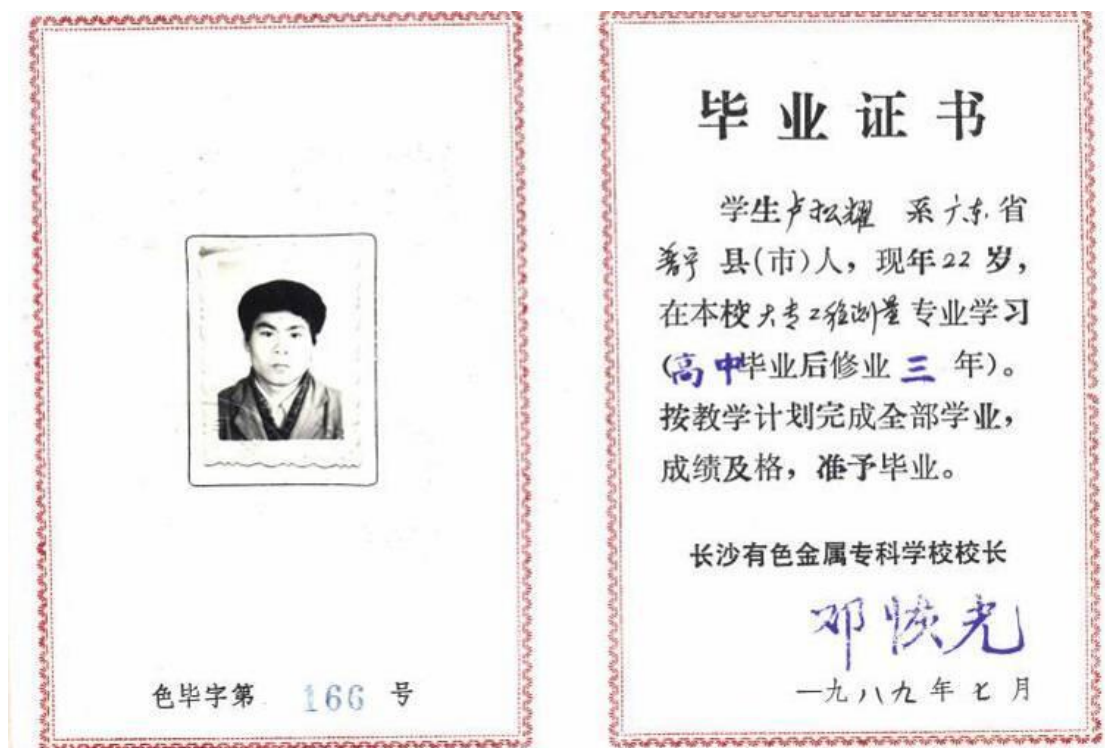 色毕字第 166 号
毕业证书
学生卢松耀 系广东省
普宁 县(市)人，现年22岁，
在本校大专工程测量专业学习
(高中毕业后修业 三 年)。
按教学计划完成全部学业，
成绩及格，准予毕业。
长沙有色金属专科学校校长
邓恢光
一九八九年七月